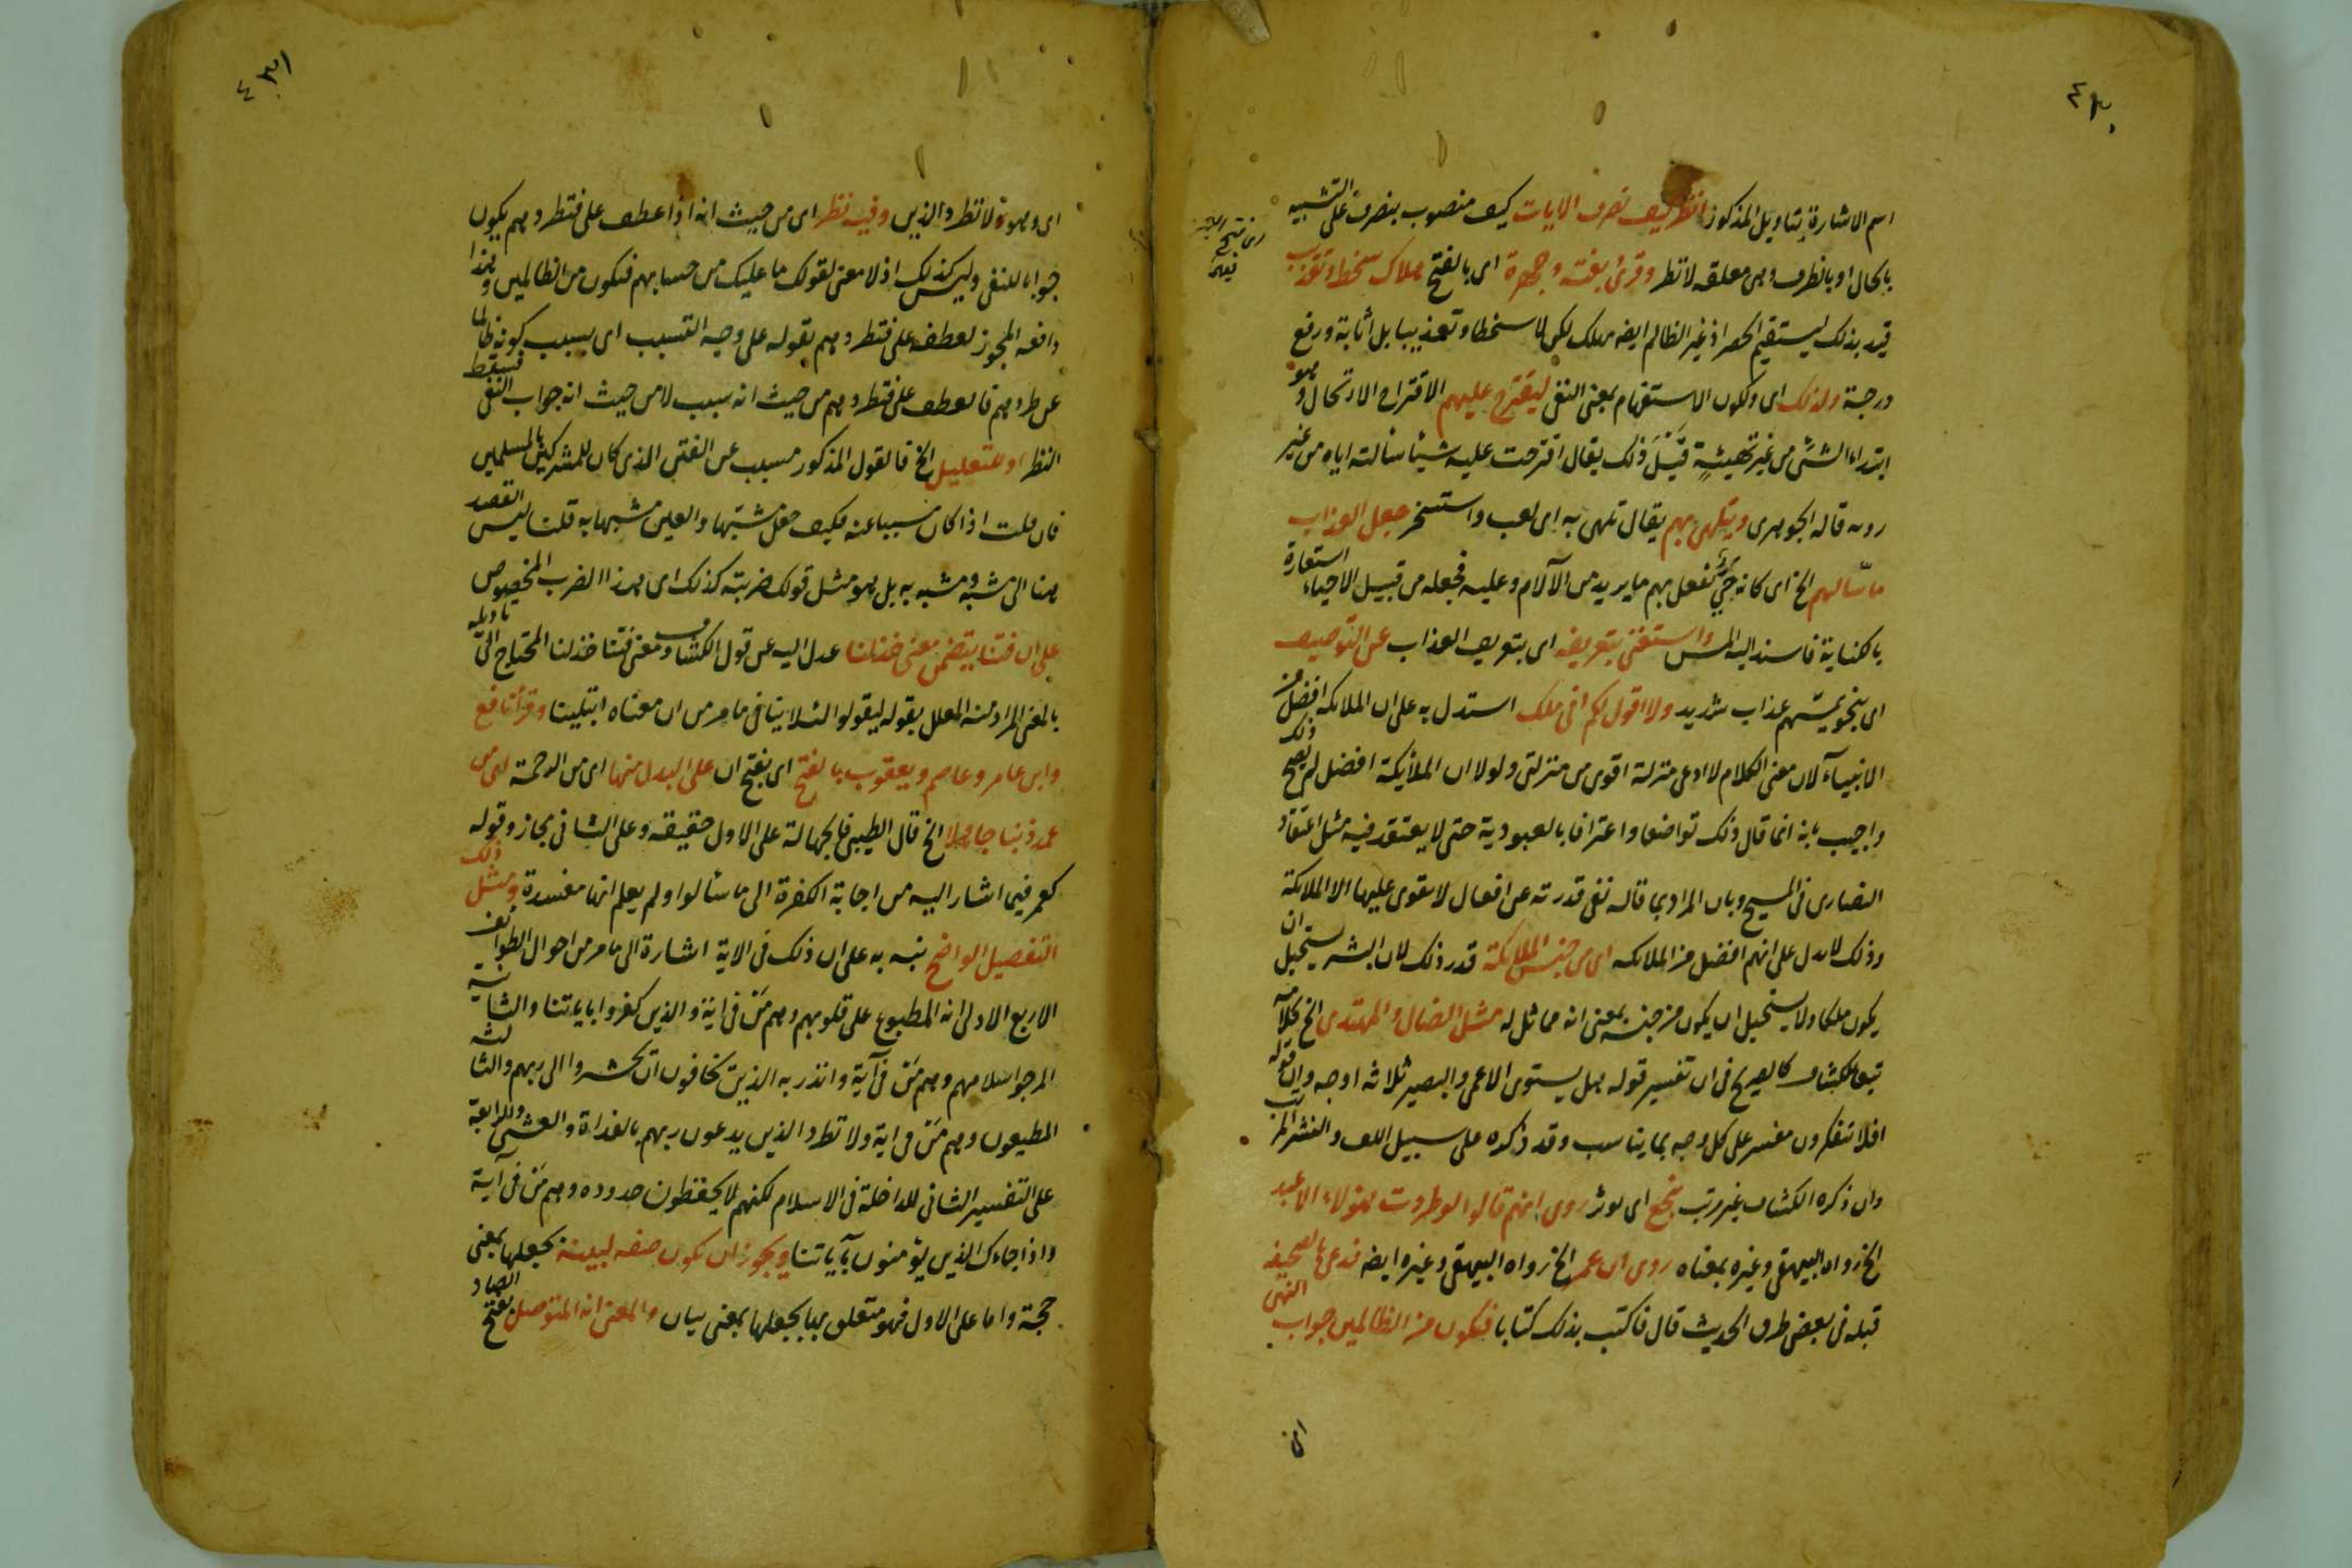 ٤٣٠
اسم الاشارة بتاويل المذكور انظر كيف نصرف الايات كيف منصوب بنصرف على التشبيه
بالحال او بالظرف وهى معلقه لانظر وقرئ بغتة وجهرة اى بالفتح هلاك سخط وتعذيب
قيد بذلك ليستقيم الحصر اذ غير الظالم ايضه يهلك لكن لا سخطا وتعذيبا بل اثابة ورفع
درجة ولذلك اى ولكون الاستفهام بمعنى النفى ليقترح عليهم الاقتراح الارتحال وهو
ابتداء الشئ من غير تهيئةٍ قبل ذلك يقال اقترحت عليه شيئا سألته اياه من غير
روية قاله الجوهرى ويتلهى بهم يقال تلهى به اى لعب واستسخر جعل العذاب
ماسّا لهم الخ اى كانه حىّ يفعل بهم ما يريد من الآلام وعليه فجعله من قبيل الاحياء استعارة
بالكناية فاسند اليه المس واستغنى بتعريفه اى بتعريف العذاب عن التوصيف
اى بنحو يمسّهم عذاب شديد ولا اقول لكم انى ملك استدل به على ان الملائكه افضل من
الانبياء لان معنى الكلام لا ادعى منزلة اقوى من منزلتى ولولا ان الملائكة افضل لم يصح ذلك
واجيب بانه انما قال ذلك تواضعا واعترافا بالعبودية حتى لا يعتقد فيه مثل اعتقاد
النصارى فى المسيح وبان المراد بما قاله نفى قدرته عن افعال لا يقوى عليها الا الملائكة
وذلك لا يدل على انهم افضل من الملائكه اى من جنس الملائكة قدر ذلك لان البشر يستحيل ان
يكون ملكا ولا يستحيل ان يكون من جنسه بمعنى انه مماثل له مثل الضال والمهتدى الخ كلامه
تبعا للكشاف كالصريح فى ان تفسير قوله هل يستوى الاعمى والبصير ثلاثه اوجه وان قوله
افلا تتفكرون مفسر على كل وجه بما يناسب وقد ذكره على سبيل اللف والنشر المرتب
وان ذكره الكشاف غير مرتب ينجع اى يوثر روى انهم قالوا لو طردت هؤلاء الاعبد
الخ رواه البيهقى وغيره بمعناه روى ان عمر الخ رواه البيهقى وغيره ايضه فدعى بالصحيفه
قبله فى بعض طرق الحديث قال فاكتب بذلك كتابا فتكون من الظالمين جواب النهى
٤٣١
اى وهو ولا تطرد الذين وفيه نظر اى من حيث انه اذا عطف على فتطردهم يكون
جوابا للنفى وليس كذلك اذ لا معنى لقولك ما عليك من حسابهم فتكون من الظالمين وهذا
دافعه المجوز لعطفه على فتطردهم بقوله على وجه التسبب اى بسبب كونه ظالما
عن طردهم فالعطف على فتطردهم من حيث انه سبب لا من حيث انه جواب النفى فسقط
النظر او للتعليل الخ فالقول المذكور مسبب عن الفتن الذى كان للمشركين بالمسلمين
فان قلت اذا كان مسببا عنه فكيف جعل مشبّها والعلى مشبها به قلت ليس القصد
هنا الى مشبه ومشبه به بل هو مثل قولك ضربته كذلك اى هذا الضرب المخصوص
على ان فتنا يتضمن معنى خذلنا عدل اليه عن قول الكشاف ومعنى فتنّا خذلنا المحتاج الى تاويله
بالمعنى المراد منه المعلل بقوله ليقولوا لئلا ينافى ما مر من ان معناه ابتلينا وقرأ نافع
وابن عامر وعاصم ويعقوب بالفتح اى بفتح ان على البدل منها اى من الرحمة اى من
عمل ذنبا جاهلا الخ قال الطيبى فالجهالة على الاول حقيقه وعلى الثانى مجاز وقوله
كعمر فيما اشار اليه من اجابة الكفرة الى ما سألوا ولم يعلم انها مفسدة ومثل ذلك
التفصيل الواضح نبه به على ان ذلك فى الاية اشارة الى ما مر من احوال الطوايف
الاربع الاولى انه المطبوع على قلوبهم وهم مَن فى اية والذين كفروا باياتنا والثانية
المرجو اسلامهم وهم مَن فى آية وانذر به الذين يخافون ان يحشروا الى ربهم والثالثه
المطيعون وهم مَن فى اية ولا تطرد الذين يدعون ربهم بالغداة والعشى والرابعة
على التفسير الثانى للداخلة فى الاسلام لكنهم لا يحفظون حدوده وهم مَن فى آية
واذا جاءك الذين يؤمنون بآياتنا ويجوز ان تكون صفه لبينه بجعلها بمعنى
حجة واما على الاول فهو متعلق بها بجعلها بمعنى بيان والمعنى انه المتوصل بفتح الصاد